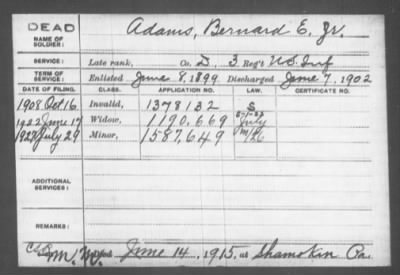 DEAD
NAME OF SOLDIER: Adams, Bernard E. Jr.
SERVICE: Late rank, Co. D, 3 Reg't U.S. Inf
TERM OF SERVICE: Enlisted June 8, 1899 Discharged June 7, 1902
DATE OF FILING. CLASS. APPLICATION NO. LAW. CERTIFICATE NO.
1908 Oct 16 Invalid, 1378132 S
1922 June 17 Widow, 1190,669 July
July 29 Minor, 1587,649
ADDITIONAL SERVICES:
REMARKS:
June 14, 1915, at Shamokin Pa.